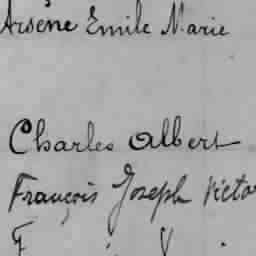 Arsène Emile Marie
Charles Albert
François Joseph Victo